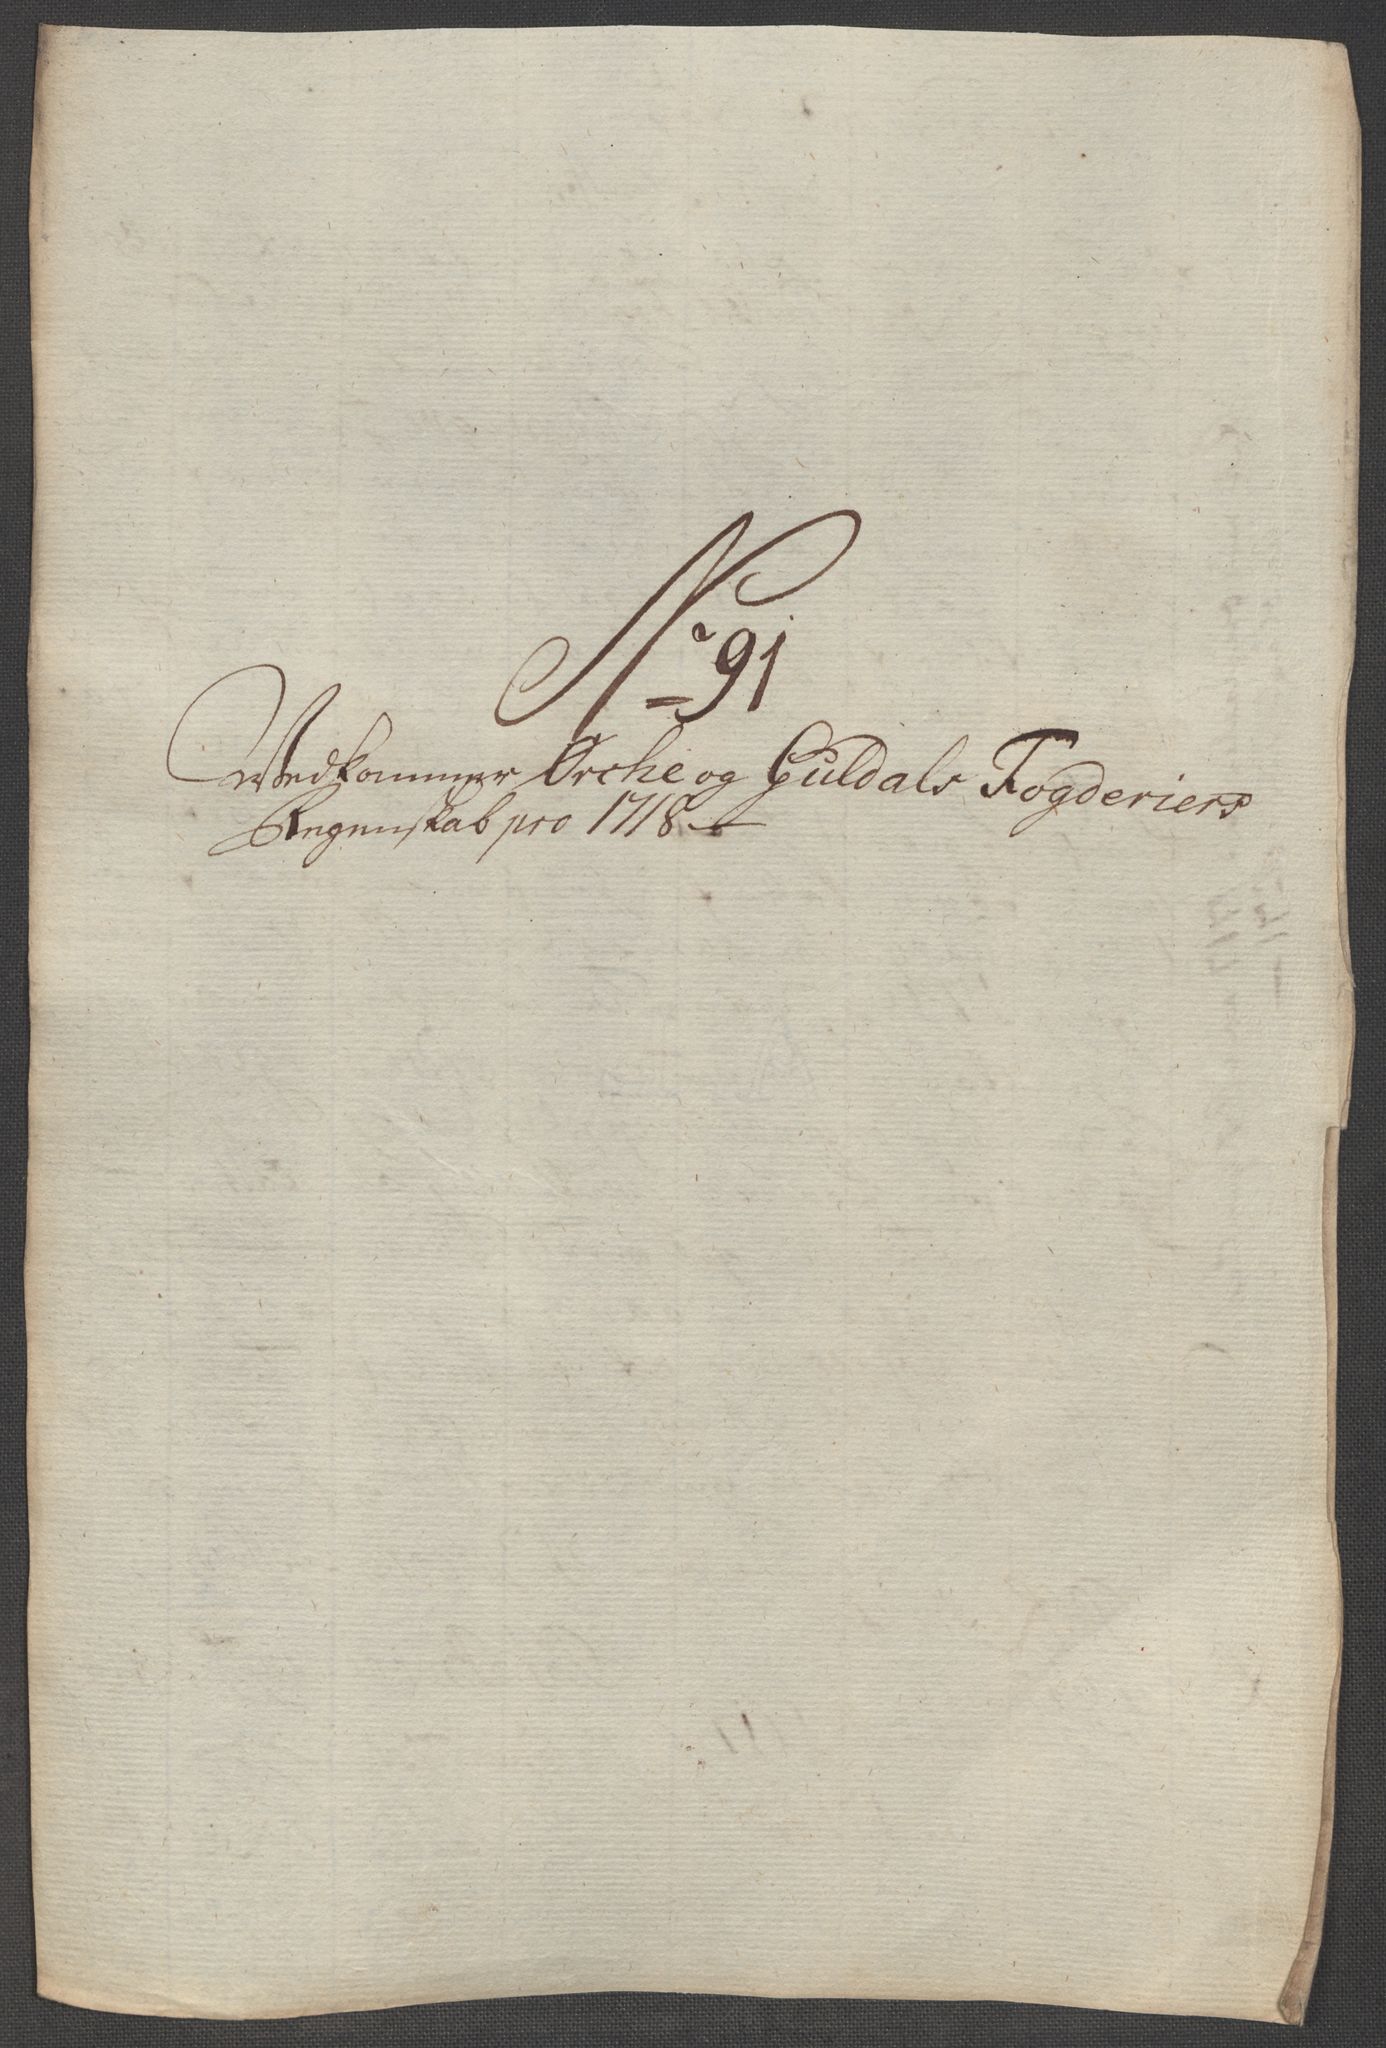 No 91
Vedkommer Orche og Guldals Fogderiers
Regenskab pro 1718